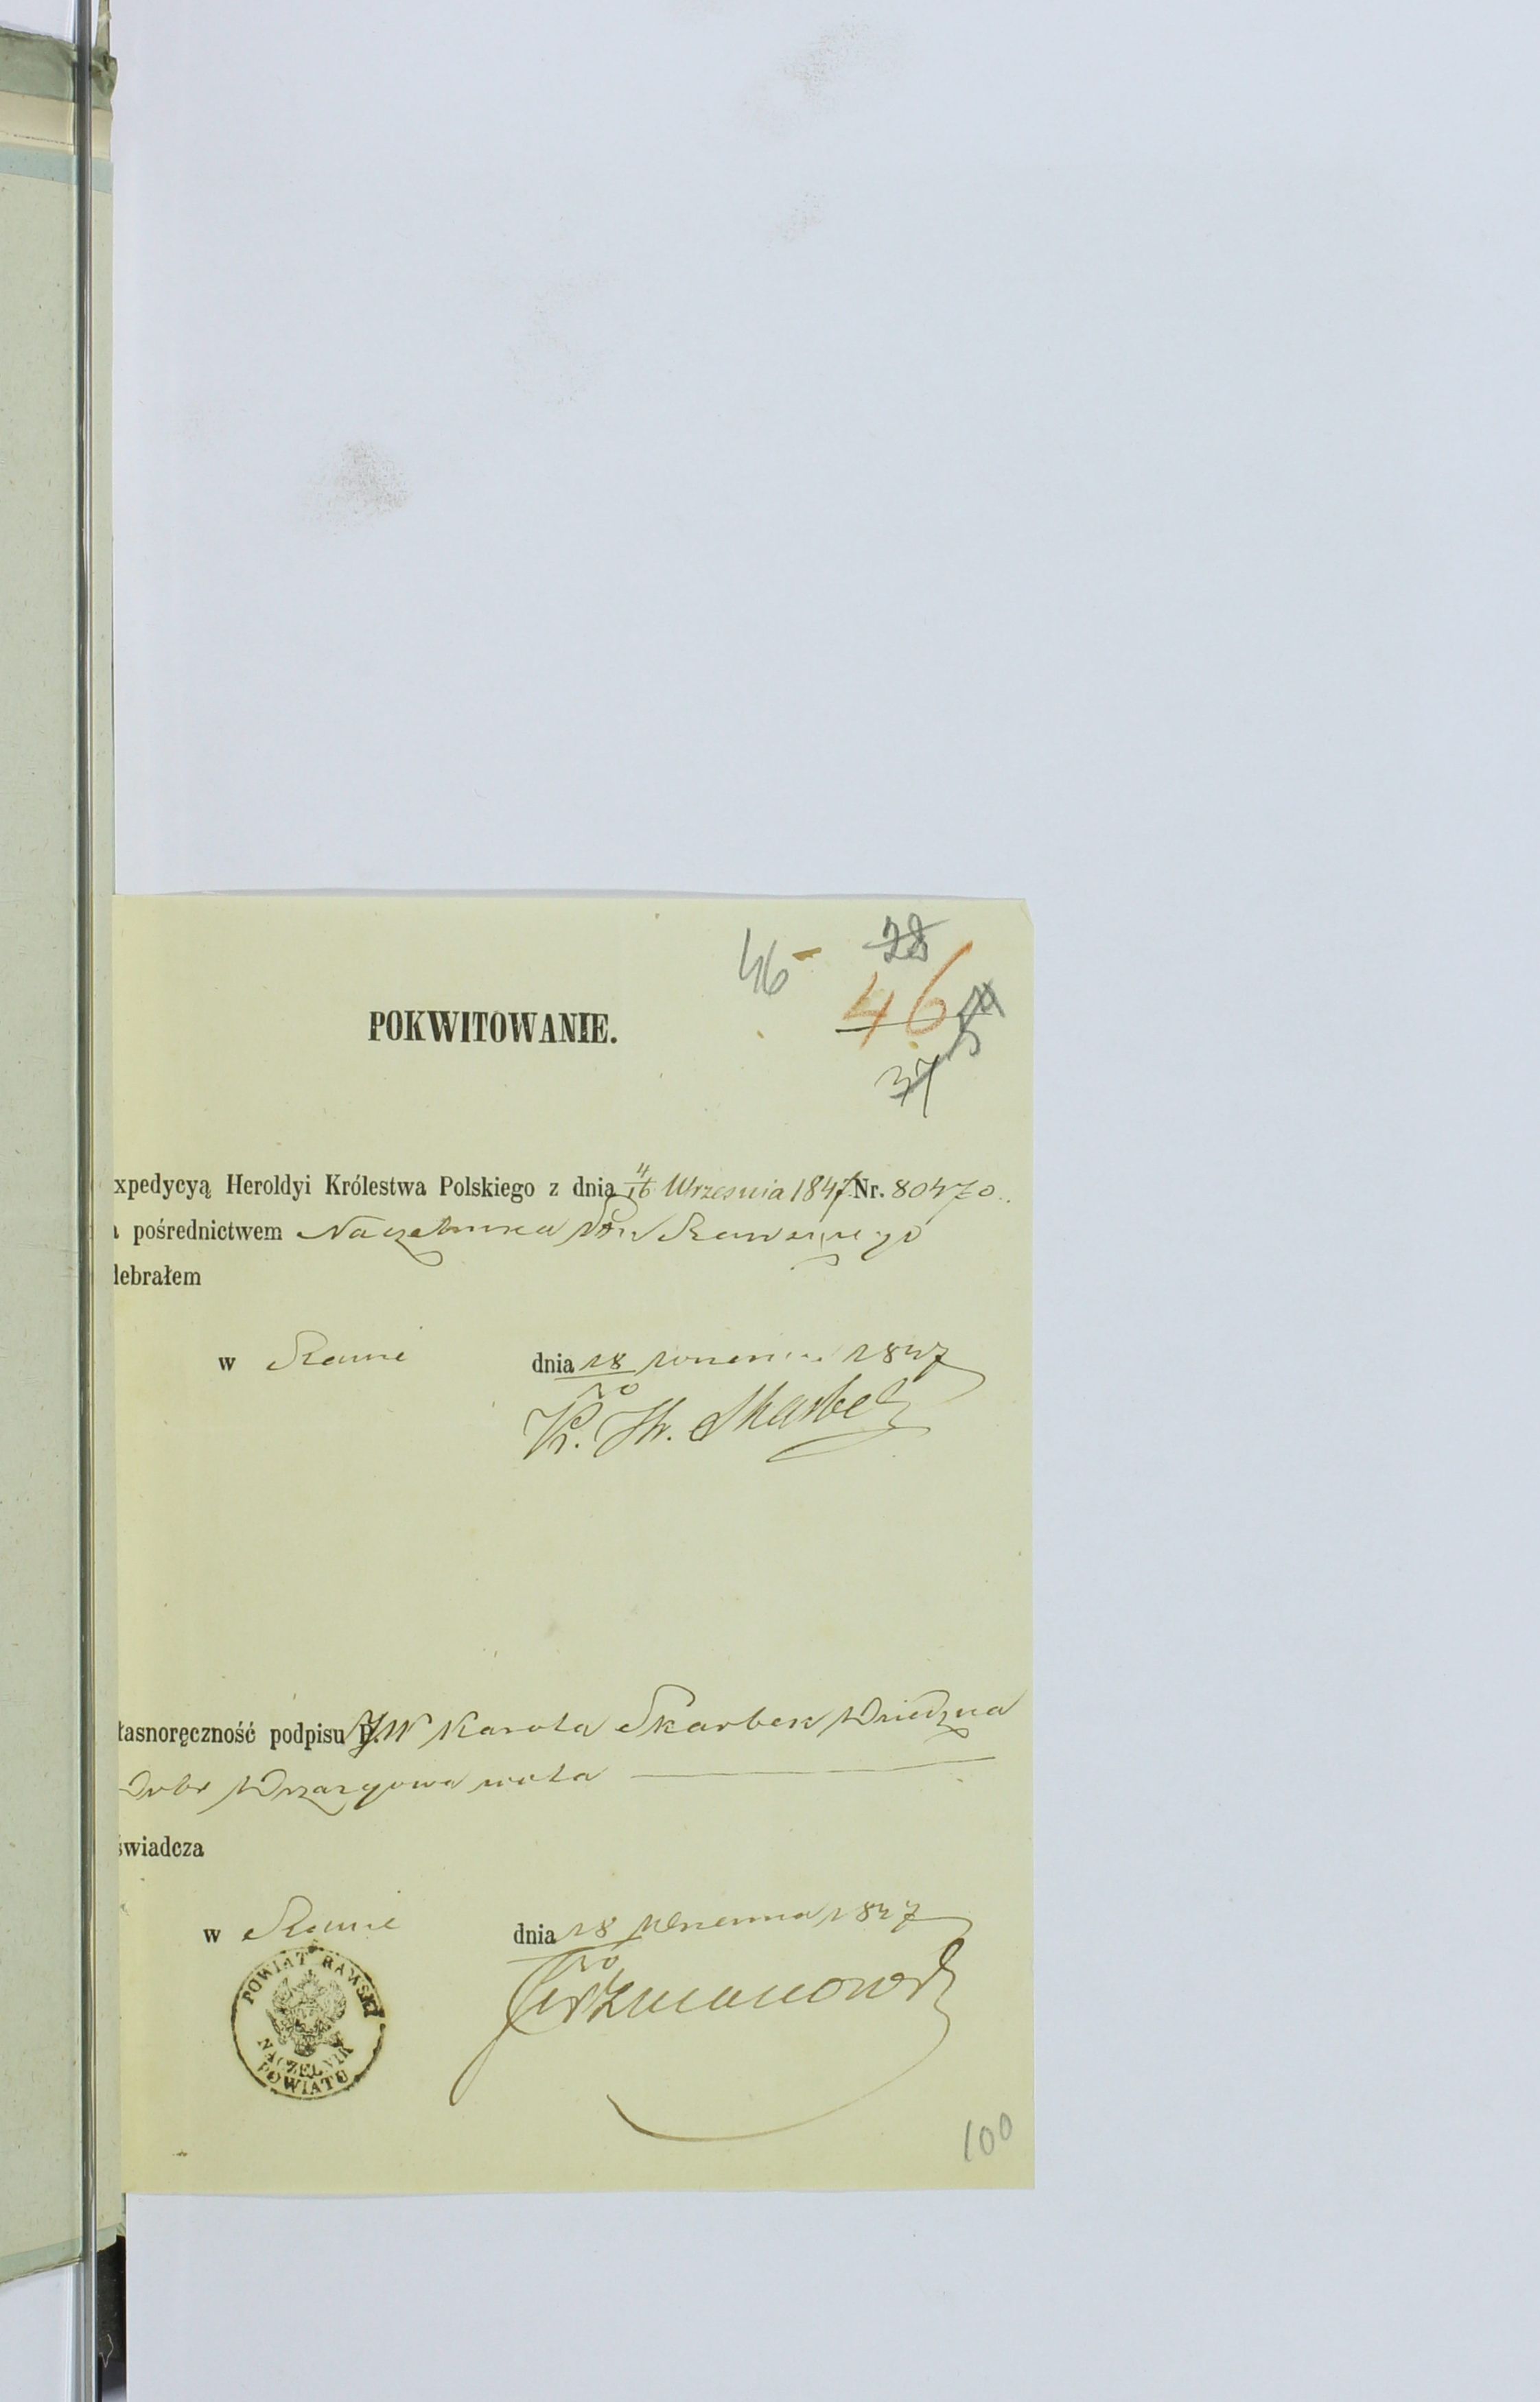 28
46
46
37
POKWITOWANIE.
xpedycyą Heroldyi Królestwa Polskiego z dnia 4/16 Września 1847 Nr. 80470
pośrednictwem Naczelnika Pow Rawskiego
lebrałem
w Rawie dnia 18/30 Września 1847
K. Hr. Skarbek
łasnoręczność podpisu P. JW Karola Skarbek Dziedzica
Dobr
świadcza
w Rawie dnia 18/30 Września 1847
POWIAT RAWSKI
NACZELNIK
POWIATU
100